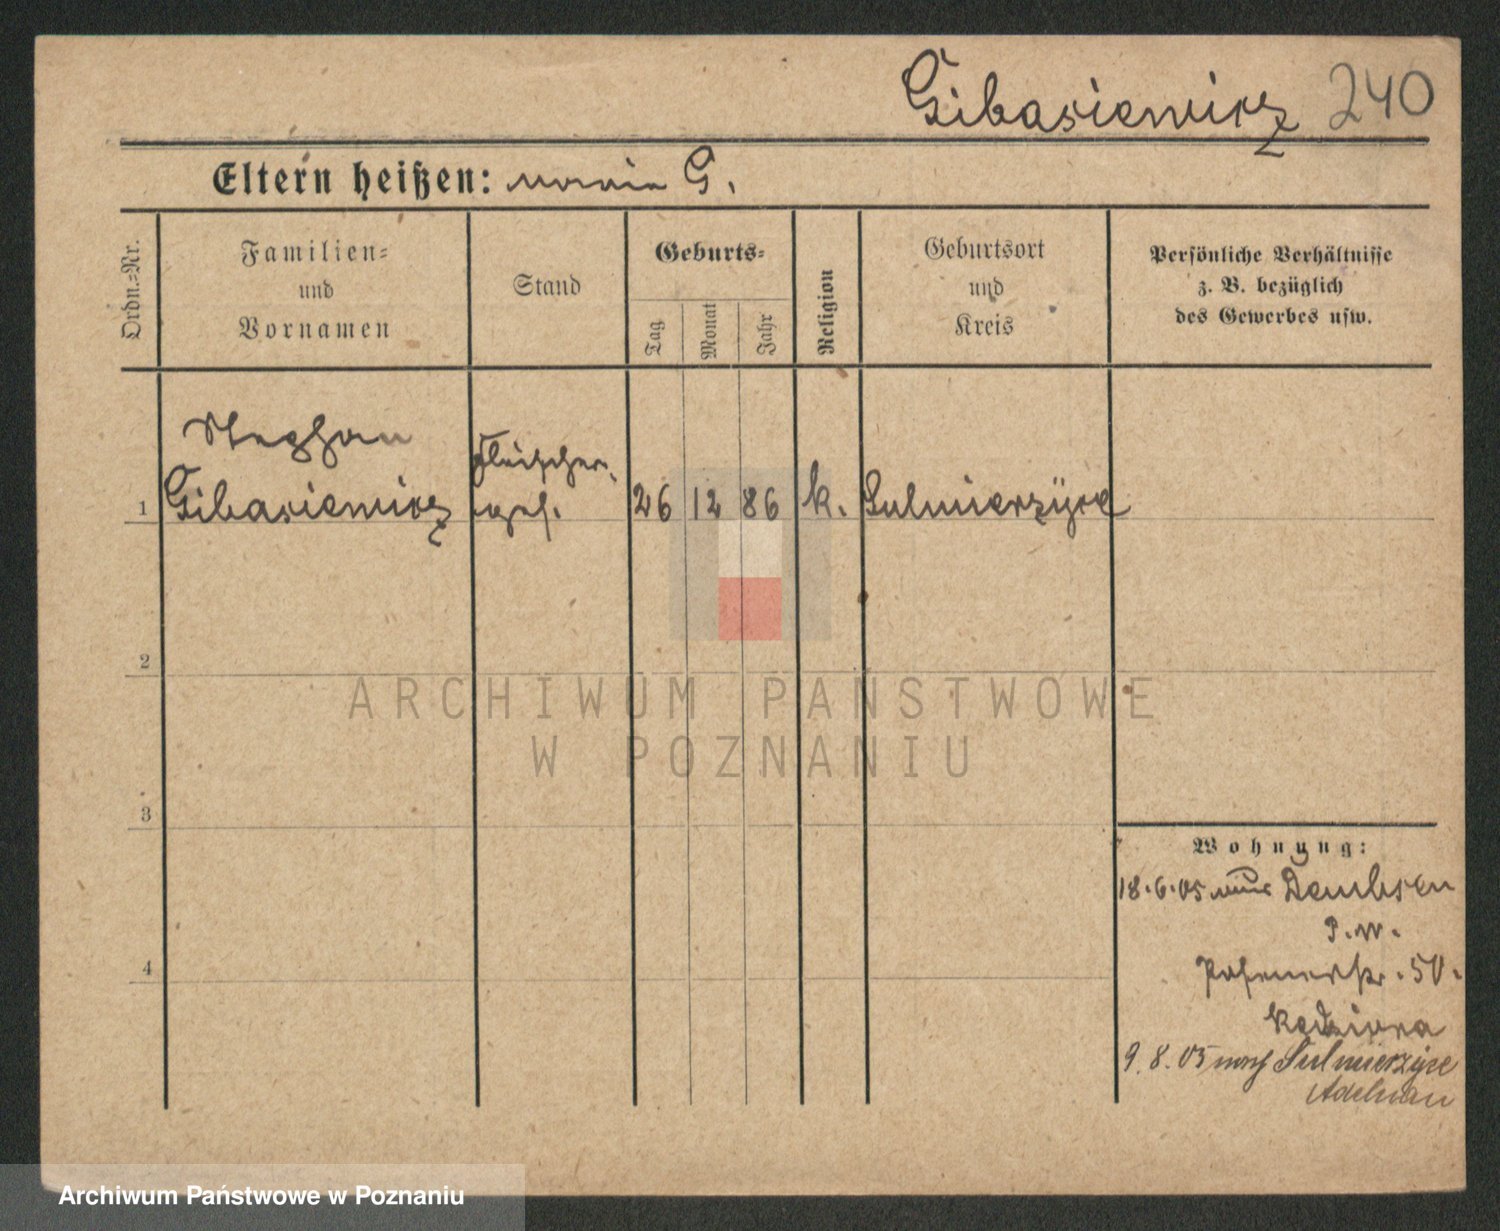 Gibasiewicz 240
Eltern heißen: Maria G.
Ordn.-Nr.
Familien-
und
Vornamen
Stand
Geburts-
Tag
Monat
Jahr
Religion
Geburtsort
und
Kreis
Persönliche Verhältnisse
z. B. bezüglich
des Gewerbes usw.
Stephan
Fleischer
1 Gibasiewicz gef. 26 12 86 k. Sulmierzyce
2
ARCHIWUM PAŃSTWOWE
W POZNANIU
3
Wohnung:
18.6.05 aus Dembsen
P.W.
Posenerstr. 50.
Kędziora
4
9.8.05 nach Sulmierzyce
Adelnau
Archiwum Państwowe w Poznaniu